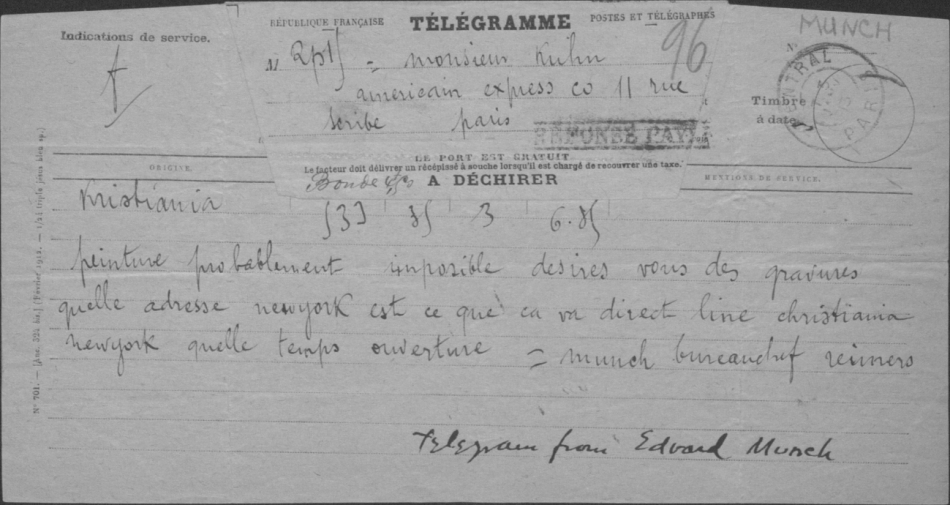 MUNCH
RÉPUBLIQUE FRANÇAISE
TÉLÉGRAMME
POSTES ET TÉLÉGRAPHES
Indications de service.
96
= monsieur Kuhn
americain express co 11 rue
scribe paris
RÉPONSE PAYÉE
CENTRAL
PARIS
Timbre
à date
LE PORT EST GRATUIT.
Le facteur doit délivrer un récépissé à souche lorsqu'il est chargé de recouvrer une taxe.
A DÉCHIRER
ORIGINE.
MENTIONS DE SERVICE.
Kristiania
533 35 3 6.35
peinture probablement imposible desires vous des gravures
quelle adresse newyork est ce que ca va direct line christiania
newyork quelle temps ouverture = munch bureauchef reimers
Telegram from Edvard Munch